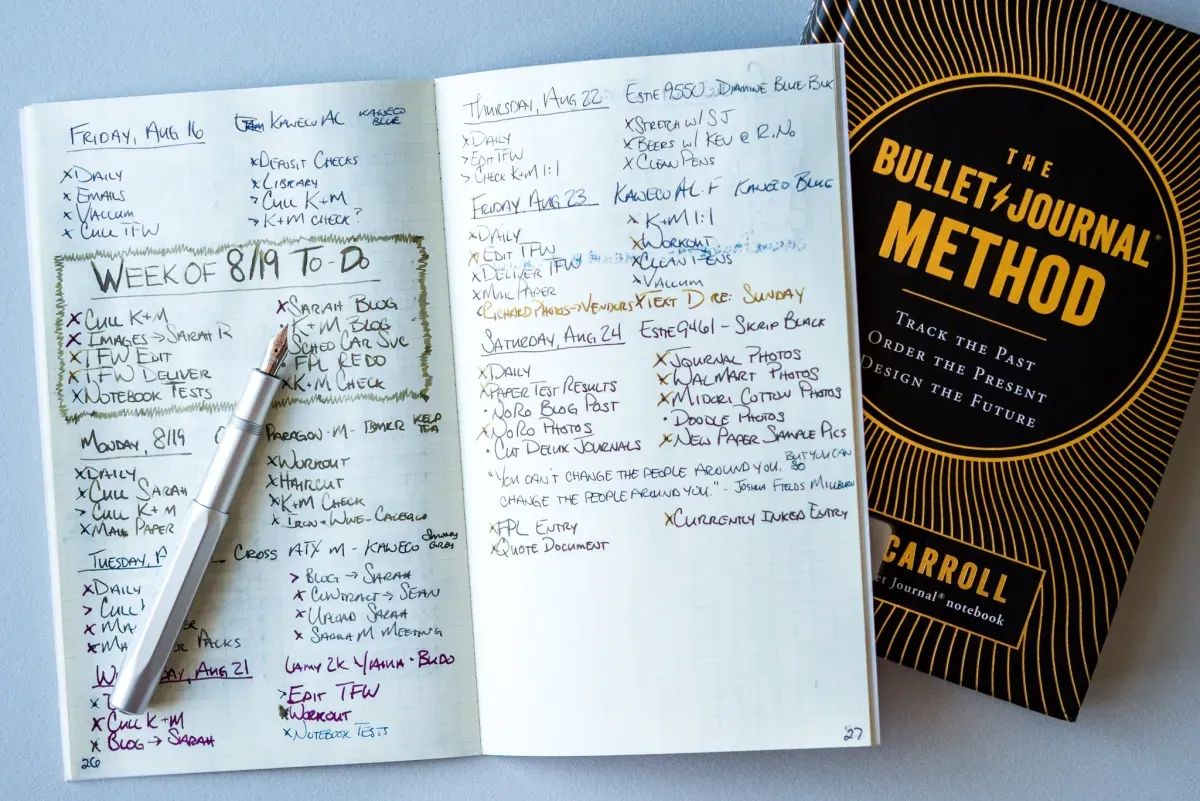 Friday, Aug 16 Kaweco AL Kaweco Blue
x Daily
x Emails
x Vaccum
x Cull TFW
x Deposit Checks
x Library
> Cull K+M
> K+M Check?
Week of 8/19 To-Do
x Cull K+M
x Images → Sarah R
x TFW Edit
x TFW Deliver
x Notebook Tests
x Sarah Blog
K+M Blog
Sched Car Svc
FPL Redo
x K+M Check
Monday, 8/19 Paragon-M- Kelp Tea
x Daily
x Cull Sarah
> Cull K+M
x Mail Paper
x Workout
x Haircut
x K+M Check
x Iron + Wine-
Tuesday, Cross ATX M - Kaweco Smokey Grey
x Daily
> Cull
x Ma
x Ma Packs
> Blog → Sarah
x Contract → Sean
x Upload Sarah
x Sarah M Meeting
W day, Aug 21 Lamy 2K
x Cull K+M
x Blog → Sarah
> Edit TFW
x Workout
x Notebook Tests
26
Thursday, Aug 22 Este 9550 Diamine Blue-Blk
x Daily
> Edit TFW
> Check K+M 1:1
x Stretch w/ SJ
x Beers w/ Kev @ R.No
x Clean Pens
Friday Aug 23 Kaweco AL-F Kaweco Blue
x Daily
x Edit TFW
x Deliver TFW
x Mail Paper
x K+M 1:1
x Workout
x Clean Pens
x Vaccum
Richard Photos → Vendors x Text D re: Sunday
Saturday, Aug 24 Este 9461 - Skrip Black
x Daily
x Paper Test Results
• NoRo Blog Post
x NoRo Photos
• Cut Delux Journals
x Journal Photos
x Walmart Photos
x Midori Cotton Photos
• Doodle Photos
x New Paper Sample Pics
"You can't change the people around you, but you can
change the people around you." - Joshua Fields Millburn
x FPL Entry
x Quote Document
x Currently Inked Entry
27
THE
BULLET JOURNAL®
METHOD
TRACK THE PAST
ORDER THE PRESENT
DESIGN THE FUTURE
CARROLL
Journal® notebook